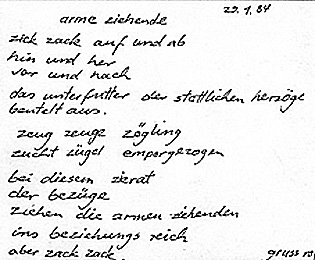 29.1.84
arme ziehende
zick zack auf und ab
hin und her
vor und nach
das unterfutter der stattlichen herzöge
beutelt aus.
zeug zeuge zögling
zucht zügel emporgezogen
bei diesem zierat
der bezüge
ziehen die armen ziehenden
ins beziehungs reich
aber zack zack.
gruss